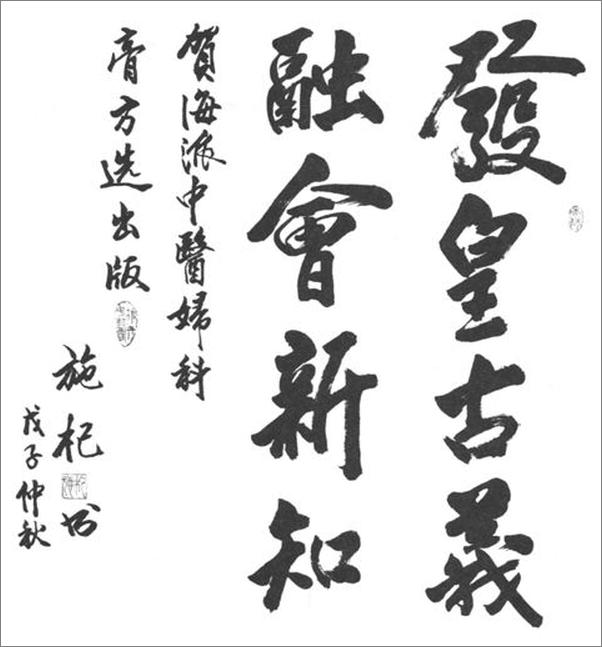 發皇古義
融會新知
賀海派中醫婦科
膏方选出版
施杞书
戊子仲秋